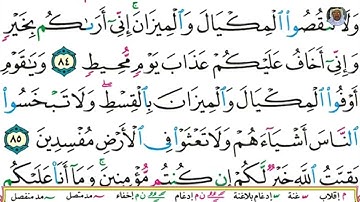 وَلَا تَنقُصُوا۟ ٱلْمِكْيَالَ وَٱلْمِيزَانَ ۚ إِنِّىٓ أَرَىٰكُم بِخَيْرٍ
وَإِنِّىٓ أَخَافُ عَلَيْكُمْ عَذَابَ يَوْمٍ مُّحِيطٍ ٨٤ وَيَٰقَوْمِ
أَوْفُوا۟ ٱلْمِكْيَالَ وَٱلْمِيزَانَ بِٱلْقِسْطِ ۖ وَلَا تَبْخَسُوا۟
ٱلنَّاسَ أَشْيَآءَهُمْ وَلَا تَعْثَوْا۟ فِى ٱلْأَرْضِ مُفْسِدِينَ ٨٥
بَقِيَّتُ ٱللَّهِ خَيْرٌ لَّكُمْ إِن كُنتُم مُّؤْمِنِينَ ۚ وَمَآ أَنَا۠ عَلَيْكُم
م إقلاب س غنة س إدغام بلاغنة ن م إدغام ن م إخفاء مد متصل مد منفصل